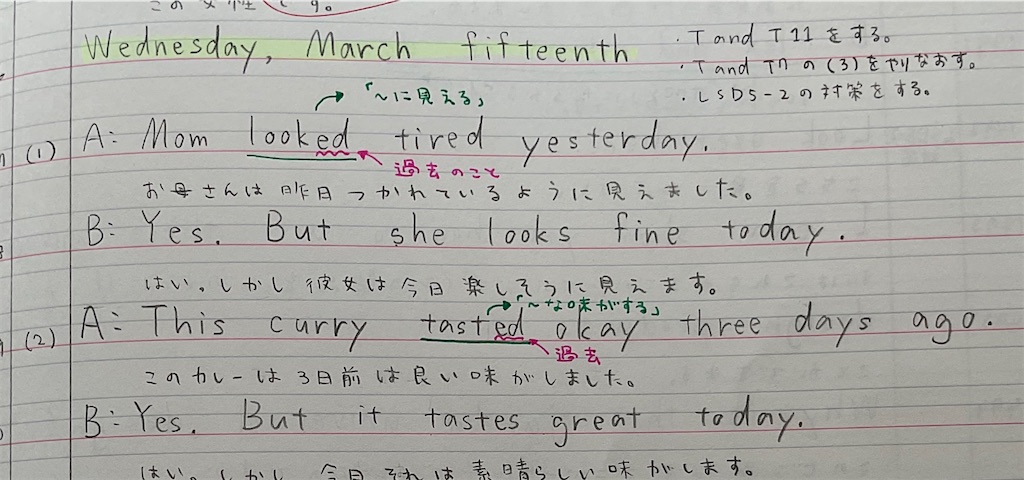 この女性です。
Wednesday, March fifteenth
・T and T 11 をする。
・T and T7 の (3)をやりなおす。
・LSD5-2の対策をする。
「~に見える」
(1) A: Mom looked tired yesterday.
過去のこと
お母さんは昨日つかれているように見えました。
B: Yes. But she looks fine today.
はい。しかし彼女は今日楽しそうに見えます。
「~な味がする」
(2) A: This curry tasted okay three days ago.
過去
このカレーは3日前は良い味がしました。
B: Yes. But it tastes great today.
はい。しかし今日それは素晴らしい味がします。